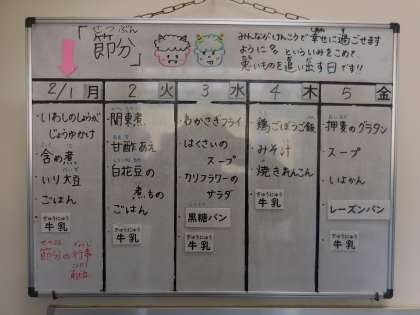 せつぶん
「節分」
みんながけんこうで幸せに過ごせます
ように という いみをこめて、
悪いものを追い出す日です!!
2/1 月
・いわしのしょうが
じょうゆかけ
・含め煮
・いり大豆
・ごはん
ぎゅうにゅう
・牛乳
節分の行事
献立
2 火
・関東煮
・甘酢あえ
・白花豆の
煮もの
・ごはん
ぎゅうにゅう
・牛乳
3 水
・わかさぎフライ
・はくさいの
スープ
・カリフラワーの
サラダ
・黒糖パン
ぎゅうにゅう
・牛乳
4 木
・鶏ごぼうご飯
・みそ汁
・焼きれんこん
ぎゅうにゅう
・牛乳
5 金
・押麦のグラタン
・スープ
・いよかん
・レーズンパン
ぎゅうにゅう
・牛乳